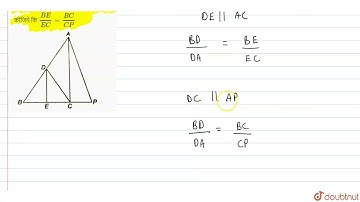 कीजिये कि BE/EC = BC/CP
A
D
B E C P
DE || AC
BD/DA = BE/EC
DC || AP
BD/DA = BC/CP
doubtnut